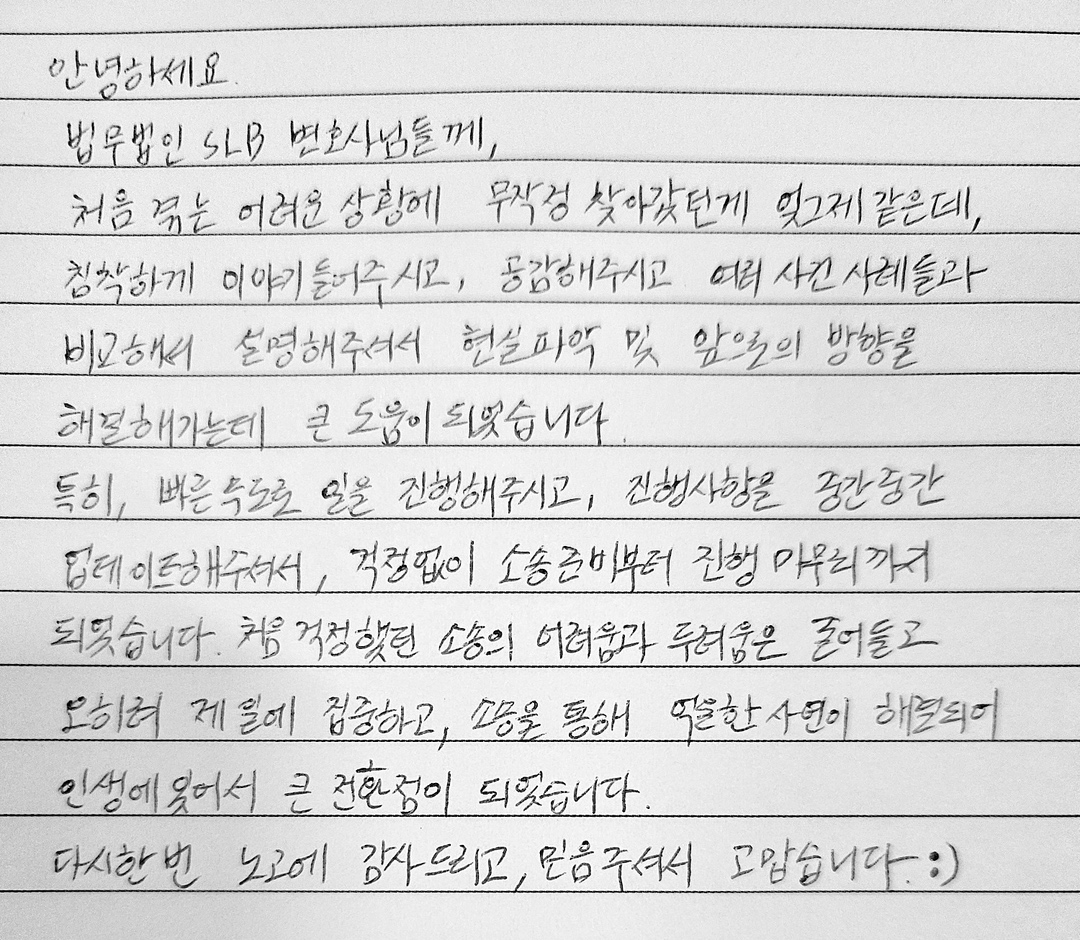 안녕하세요.
법무법인 SLB 변호사님들께,
처음 겪는 어려운 상황에 무작정 찾아갔던게 엊그제 같은데,
침착하게 이야기 들어주시고, 공감해주시고 여러 사건 사례들과
비교해서 설명해주셔서 현실파악 및 앞으로의 방향을
해결해가는데 큰 도움이 되었습니다.
특히, 빠른 속도로 일을 진행해주시고, 진행사항을 중간중간
업데이트해주셔서, 걱정없이 소송준비부터 진행 마무리까지
되었습니다. 처음 걱정했던 소송의 어려움과 두려움은 줄어들고
오히려 제 일에 집중하고, 소송을 통해 억울한 사연이 해결되어
인생에 있어서 큰 전환점이 되었습니다.
다시한번 노고에 감사드리고, 믿음주셔서 고맙습니다. :)